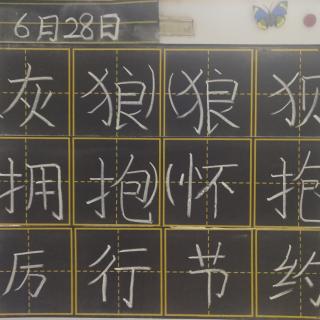 6月28日
灰狼)(狼狈
拥抱)(怀抱
厉行节约